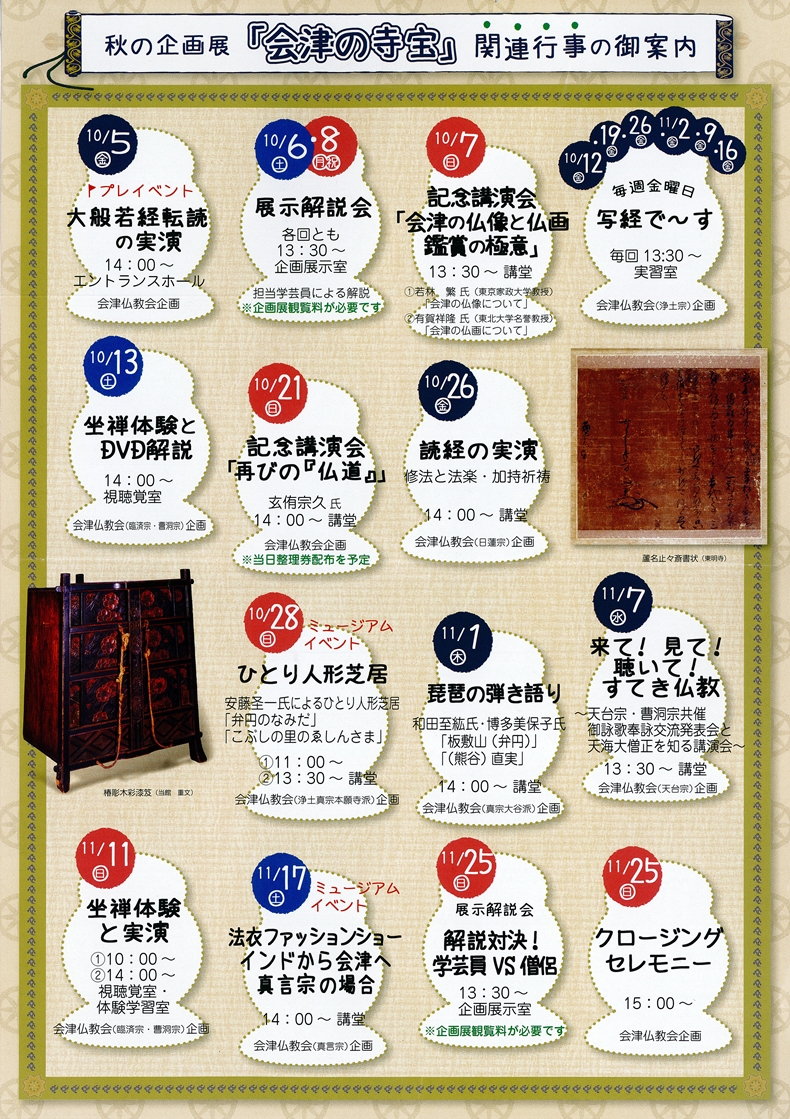 秋の企画展『会津の寺宝』関連行事の御案内
10/5
金
プレイベント
大般若経転読
の実演
14：00～
エントランスホール
会津仏教会企画
10/6・8
土 月祝
展示解説会
各回とも
13：30～
企画展示室
担当学芸員による解説
※企画展観覧料が必要です
10/7
日
記念講演会
「会津の仏像と仏画
鑑賞の極意」
13：30～ 講堂
①若林　繁 氏（東京家政大学教授）
「会津の仏像について」
②有賀祥隆 氏（東北大学名誉教授）
「会津の仏画について」
10/12・19・26・11/2・9・16
金 金 金 金 金 金
毎週金曜日
写経で～す
毎回 13:30～
実習室
会津仏教会（浄土宗）企画
10/13
土
坐禅体験と
DVD解説
14：00～
視聴覚室
会津仏教会（臨済宗・曹洞宗）企画
10/21
日
記念講演会
「再びの『仏道』」
玄侑宗久 氏
14：00～ 講堂
会津仏教会企画
※当日整理券配布を予定
10/26
金
読経の実演
修法と法楽・加持祈祷
14：00～ 講堂
会津仏教会（日蓮宗）企画
蘆名止々斎書状（東明寺）
椿彫木彩漆笈（当館　重文）
10/28
日
ミュージアム
イベント
ひとり人形芝居
安藤圣一氏によるひとり人形芝居
「弁円のなみだ」
「こぶしの里のゑしんさま」
①11：00～
②13：30～ 講堂
会津仏教会（浄土真宗本願寺派）企画
11/1
木
琵琶の弾き語り
和田至紘氏・博多美保子氏
「板敷山（弁円）」
「（熊谷）直実」
14：00～ 講堂
会津仏教会（真宗大谷派）企画
11/7
水
来て！ 見て！
聴いて！
すてき仏教
～天台宗・曹洞宗共催
御詠歌奉詠交流発表会と
天海大僧正を知る講演会～
13：30～ 講堂
会津仏教会（天台宗）企画
11/11
日
坐禅体験
と実演
①10：00～
②14：00～
視聴覚室・
体験学習室
会津仏教会（臨済宗・曹洞宗）企画
11/17
土
ミュージアム
イベント
法衣ファッションショー
インドから会津へ
真言宗の場合
14：00～ 講堂
会津仏教会（真言宗）企画
11/25
日
展示解説会
解説対決！
学芸員 VS 僧侶
13：30～
企画展示室
※企画展観覧料が必要です
11/25
日
クロージング
セレモニー
15：00～
会津仏教会企画